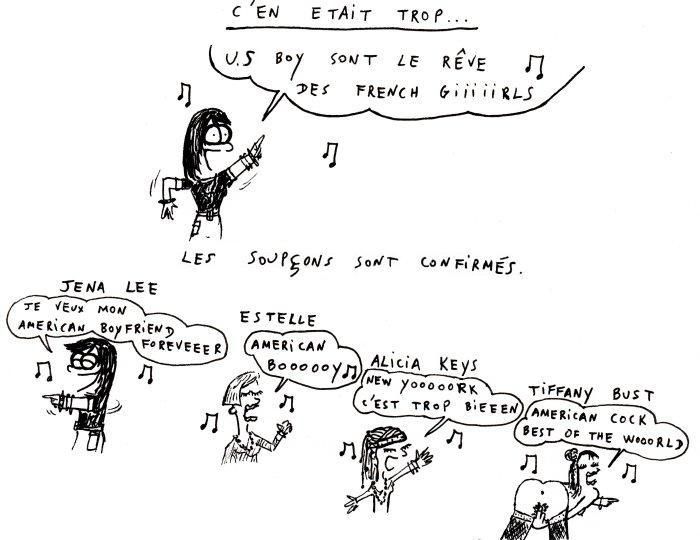 C'EN ETAIT TROP...
U.S BOY SONT LE RÊVE
DES FRENCH GiiiiiRLS
LES SOUPÇONS SONT CONFIRMÉS.
JENA LEE
JE VEUX MON
AMERICAN BOYFRIEND
FOREVEEER
ESTELLE
AMERICAN
BOOOOOY
ALICIA KEYS
NEW YOOOOORK
C'EST TROP BIEEEN
TIFFANY BUST
AMERICAN COCK
BEST OF THE WOOORLD